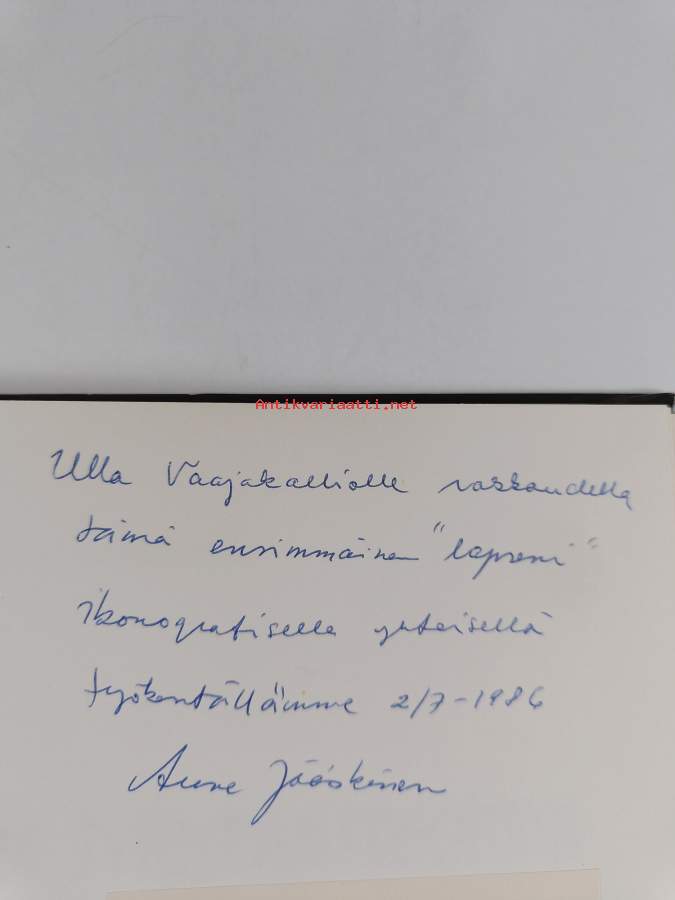 Antikvariaatti.net
Ulla Vaajakalliolle rakkaudella
tämä ensimmäinen "lapseni"
ikonografisella yhteisellä
työkentällämme 2/7-1986
Aune Jääskinen